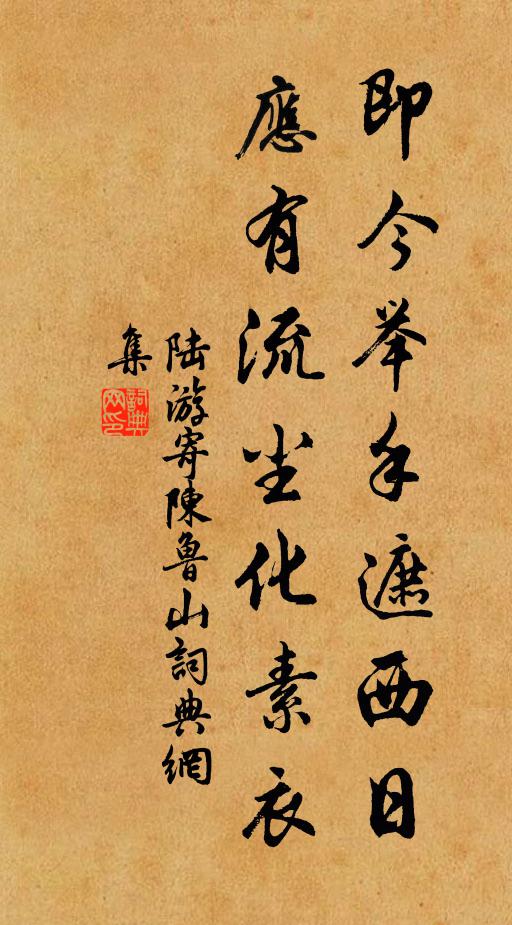 即今举手遮西日
應有流尘化素衣
陆游寄陳魯山詞典網
集
詞典
网印